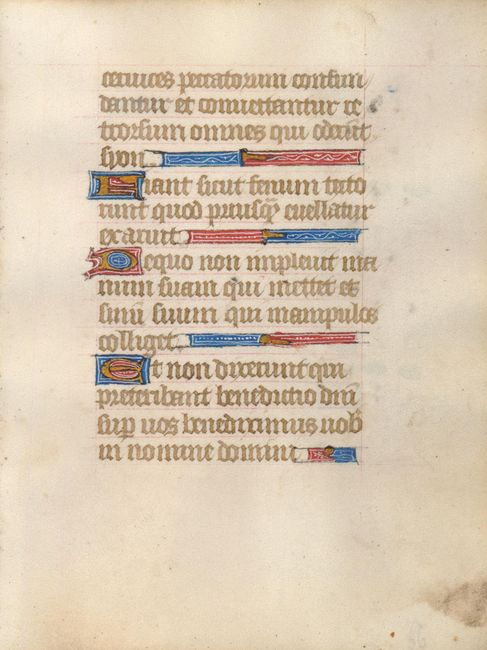 cervices peccatorum confun
dantur et convertantur re
trorsum omnes qui oderūt
syon
Fiant sicut fenum tecto
rum quod priusqȝ evellatur
exaruit
De quo non implevit ma
num suam qui mettet et
sinū suum qui manipulos
colliget
Et non dixerunt qui
preteribant benedictio dn̄i
sup vos benediximus vob
in nomine domini